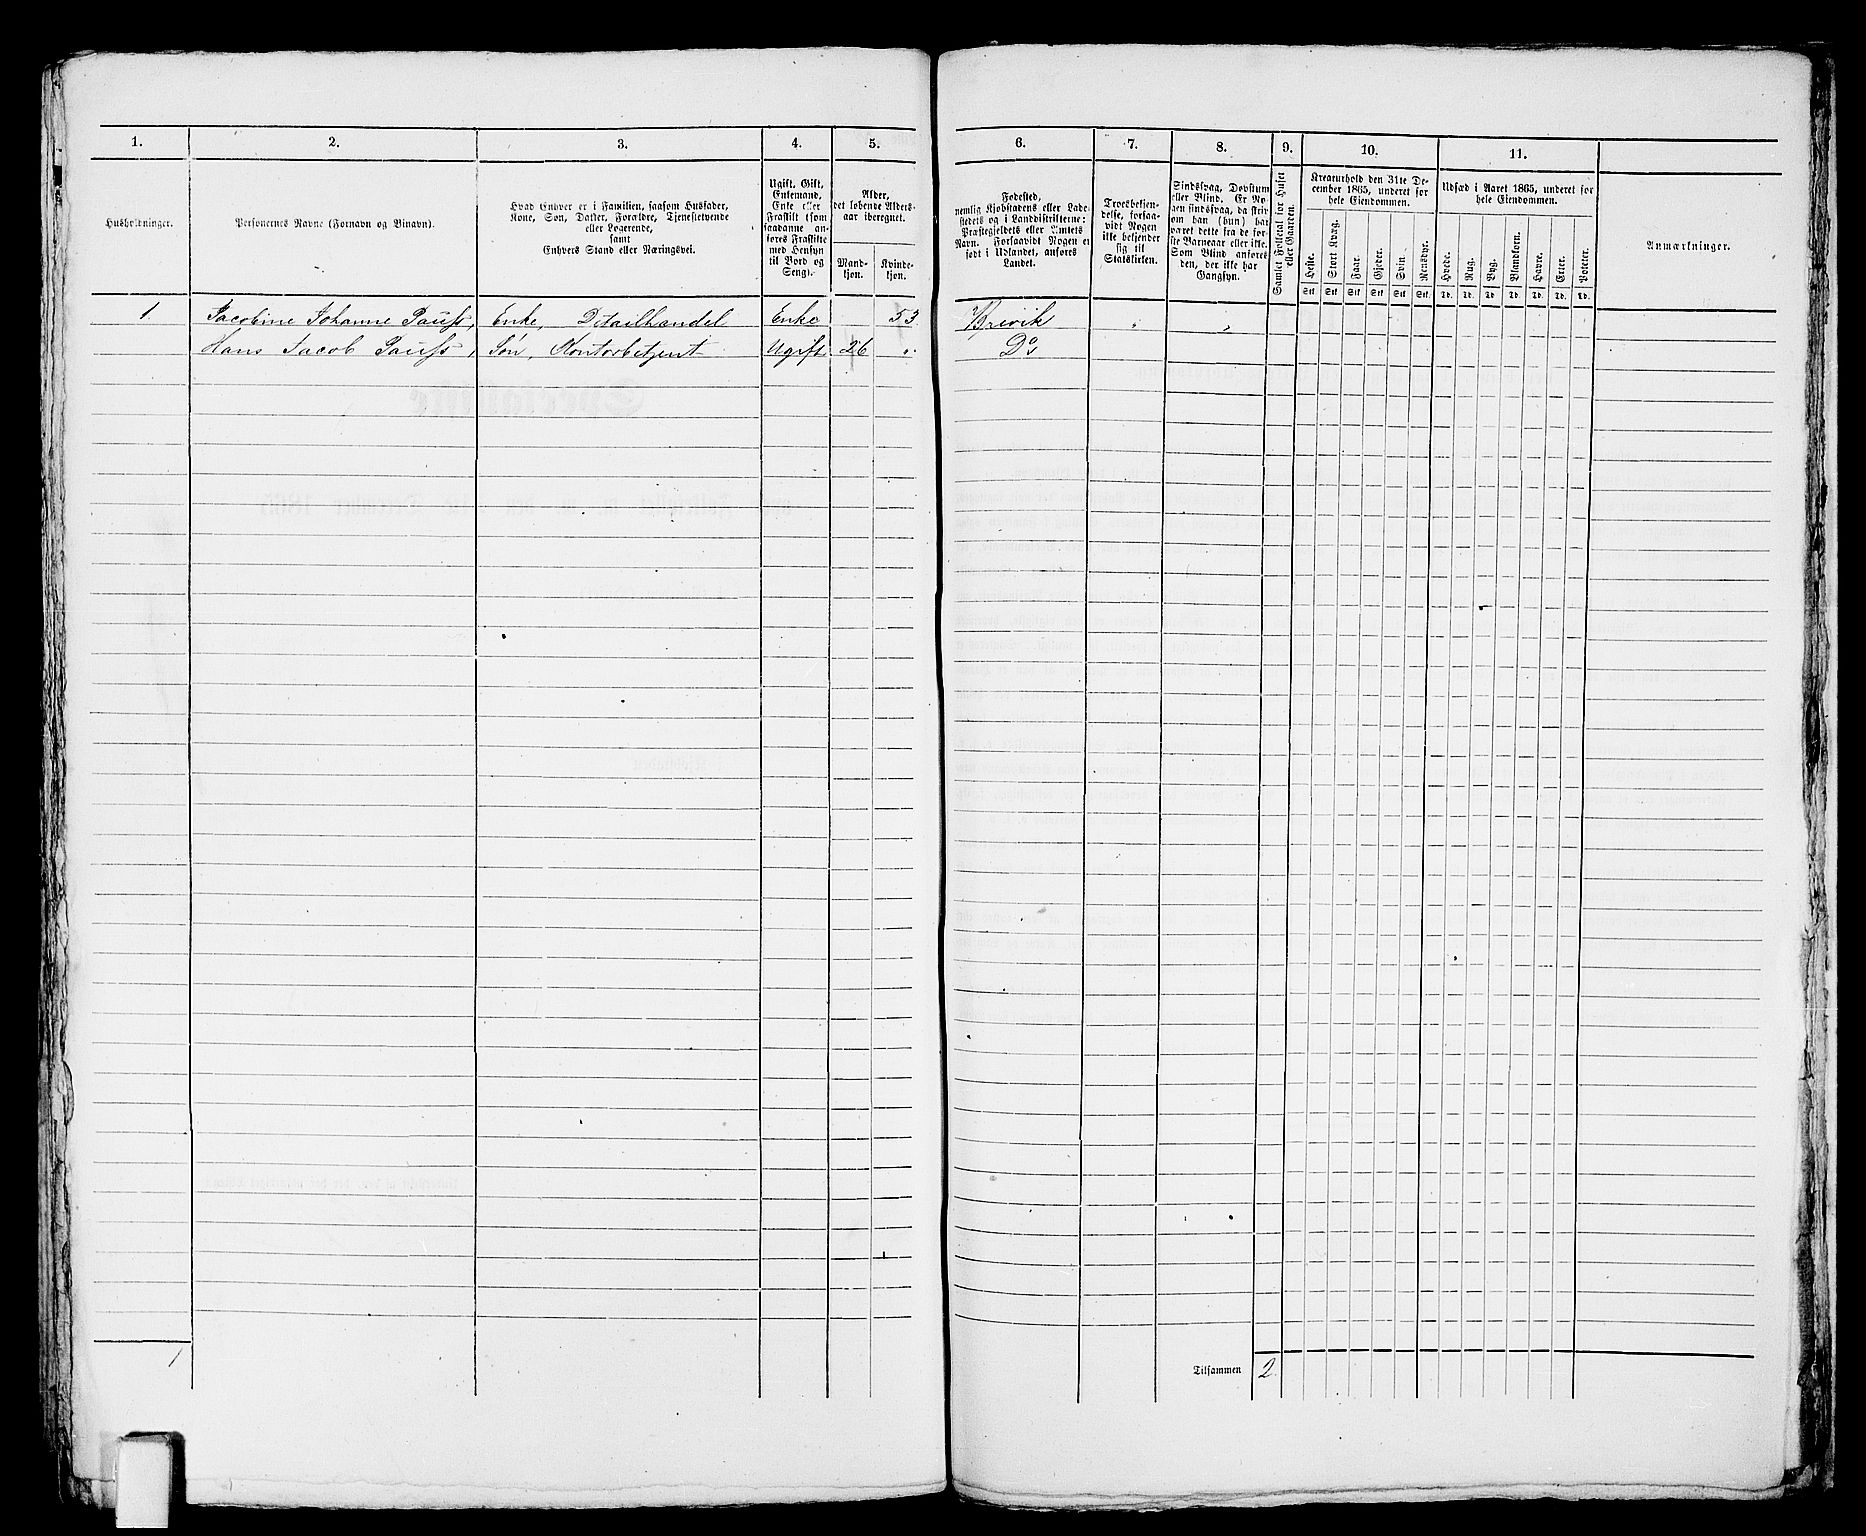 1.
2.
3.
4.
5.
6.
7.
8.
9.
10.
11.
Husholdninger.
Personernes Navne (Fornavn og Binavn).
Hvad Enhver er i Familien, saasom Husfader,
Kone, Søn, Datter, Forældre, Tjenestetyende
eller Logerende,
samt
Enhvers Stand eller Næringsvei.
Ugift, Gift,
Enkemand,
Enke eller
Fraskilt (som
saadanne an-
føres Fraskilte
med Hensyn
til Bord og
Seng).
Alder,
det løbende Alders-
aar iberegnet.
Mand-
kjøn.
Kvinde-
kjøn.
Fødested,
nemlig Kjøbstadens eller Lade-
stedets og i Landdistrikterne:
Præstegjeldets eller Amtets
Navn. Forsaavidt Nogen er
født i Udlandet, anføres
Landet.
Troesbekjen-
delse, forsaa-
vidt Nogen
ikke bekjender
sig til
Statskirken.
Sindssvag, Døvstum
eller Blind. Er No-
gen sindssvag, da skriv
om han (hun) har
været dette fra de før-
ste Barneaar eller ikke.
Som Blind anføres
den, der ikke har
Gangsyn.
Samlet Folketal for Huset
eller Gaarden.
Kreaturhold den 31te De-
cember 1865, underet for
hele Eiendommen.
Heste.
Stort Kvæg.
Faar.
Gjeder.
Svin.
Rensdyr.
Stk Stk Stk Stk Stk Stk.
Udsæd i Aaret 1865, underet for
hele Eiendommen.
Hvede.
Rug.
Byg.
Blandkorn.
Havre.
Erter.
Poteter.
Td. Td. Td. Td. Td. Td. Td.
Anmærkninger.
1. Jacobine Johanne Pauss, Enke, Detailhandel Enke 53 Brevik " "
Hans Jacob Pauss, Søn, Kontorbetjent Ugift 26 " Do
1
Tilsammen 2.